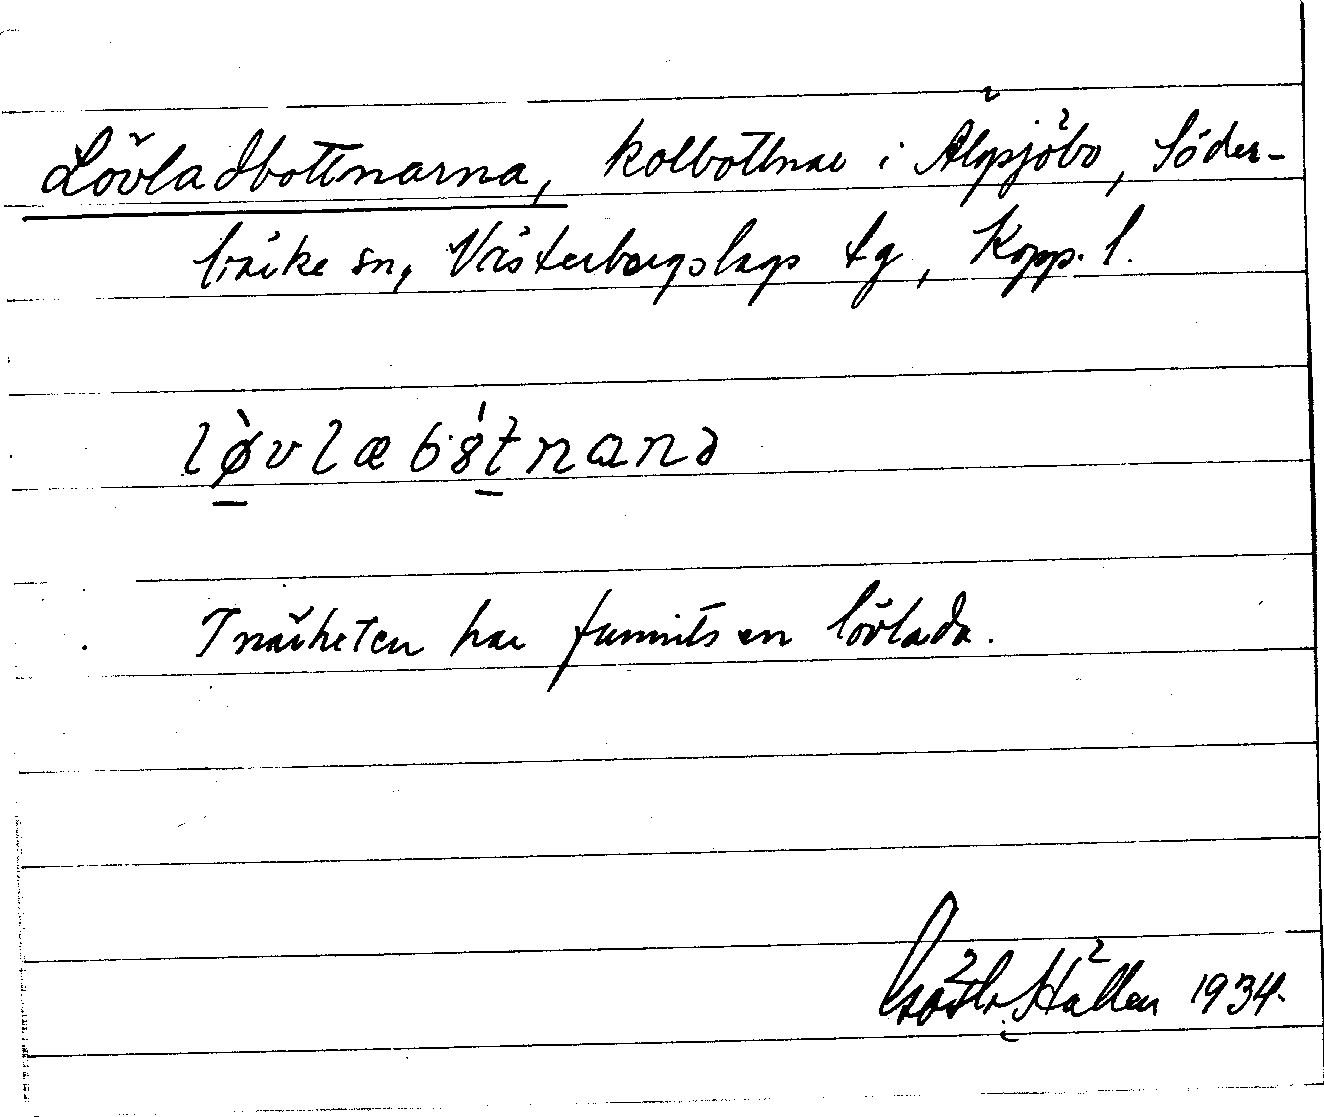 Lövladbottnarna, kolbottnar i Älgsjöbo, Söder-
bärke sn, Västerbergslags tg, Kopp. l.
løvlæbȣtnanə
I närheten har funnits en lövlada.
Hällen 1934.